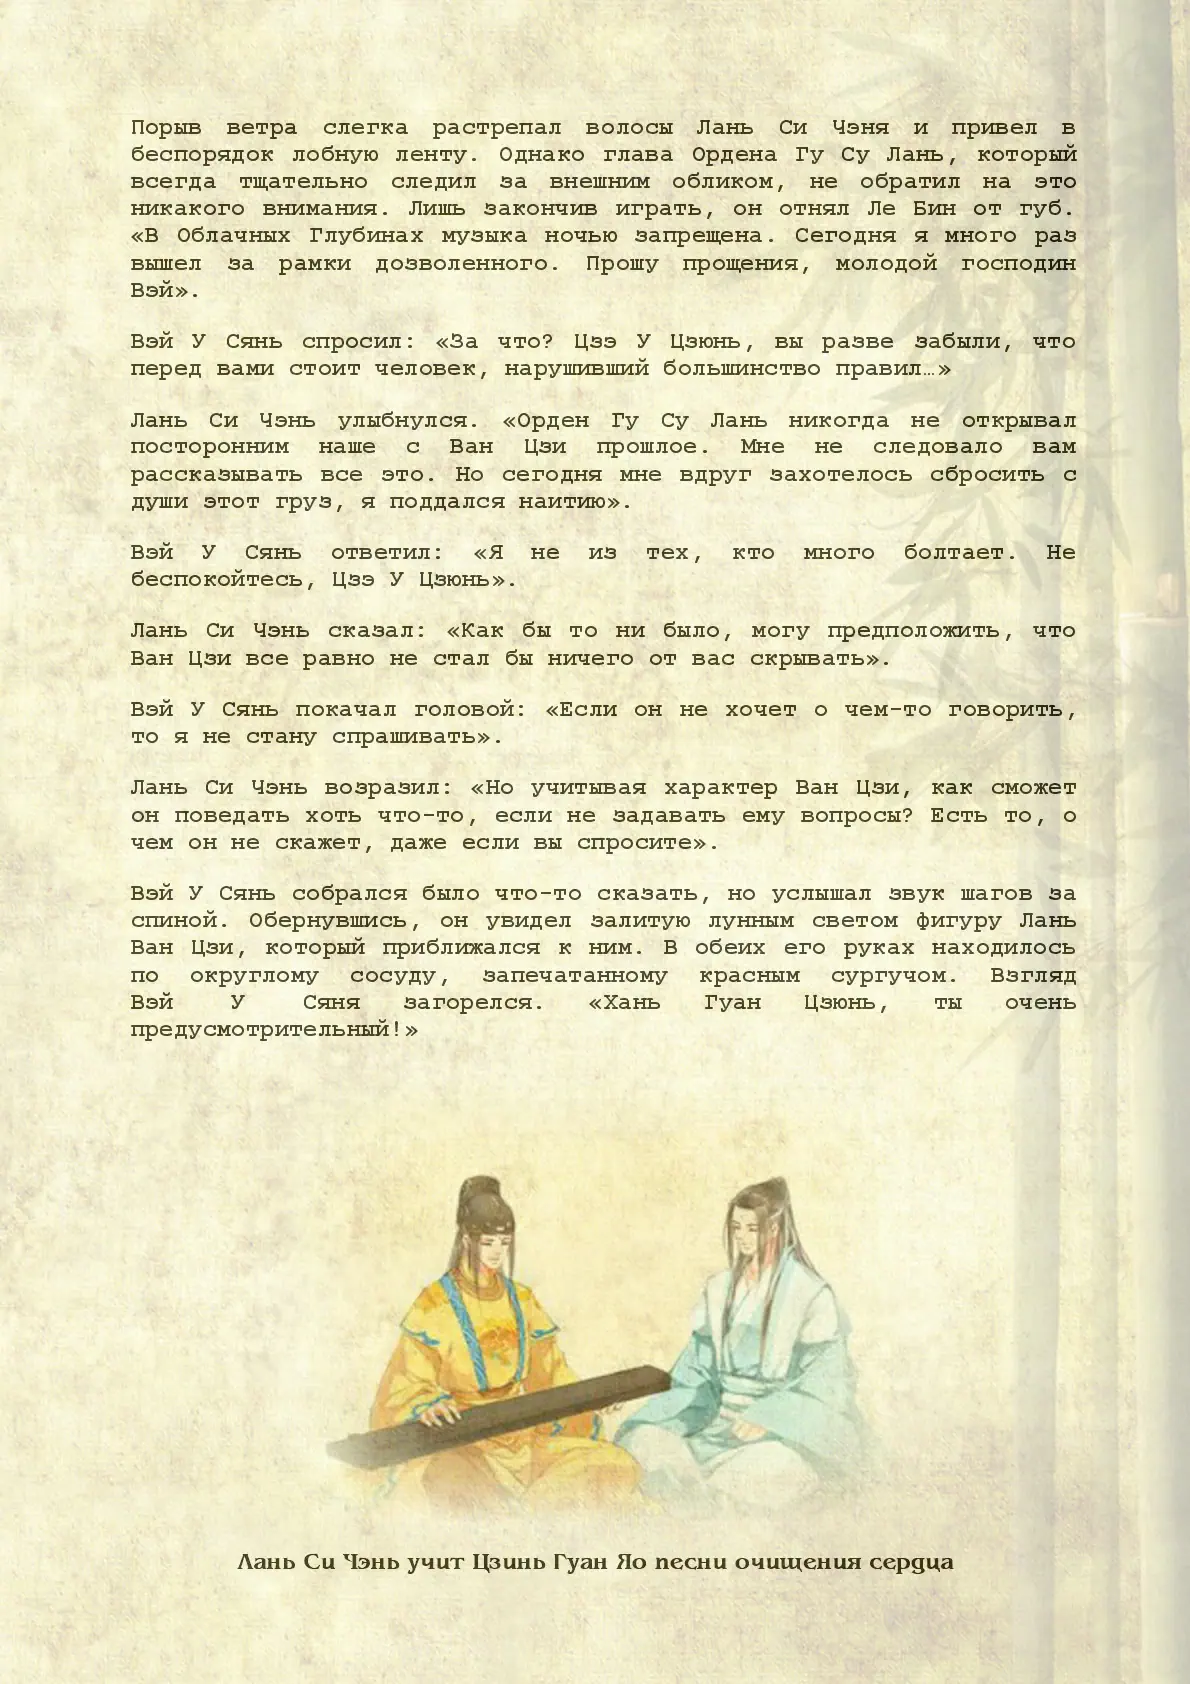 Порыв ветра слегка растрепал волосы Лань Си Чэня и привел в
беспорядок лобную ленту. Однако глава Ордена Гу Су Лань, который
всегда тщательно следил за внешним обликом, не обратил на это
никакого внимания. Лишь закончив играть, он отнял Ле Бин от губ.
«В Облачных Глубинах музыка ночью запрещена. Сегодня я много раз
вышел за рамки дозволенного. Прошу прощения, молодой господин
Вэй».
Вэй У Сянь спросил: «За что? Цзэ У Цзюнь, вы разве забыли, что
перед вами стоит человек, нарушивший большинство правил…»
Лань Си Чэнь улыбнулся. «Орден Гу Су Лань никогда не открывал
посторонним наше с Ван Цзи прошлое. Мне не следовало вам
рассказывать все это. Но сегодня мне вдруг захотелось сбросить с
души этот груз, я поддался наитию».
Вэй У Сянь ответил: «Я не из тех, кто много болтает. Не
беспокойтесь, Цзэ У Цзюнь».
Лань Си Чэнь сказал: «Как бы то ни было, могу предположить, что
Ван Цзи все равно не стал бы ничего от вас скрывать».
Вэй У Сянь покачал головой: «Если он не хочет о чем-то говорить,
то я не стану спрашивать».
Лань Си Чэнь возразил: «Но учитывая характер Ван Цзи, как сможет
он поведать хоть что-то, если не задавать ему вопросы? Есть то, о
чем он не скажет, даже если вы спросите».
Вэй У Сянь собрался было что-то сказать, но услышал звук шагов за
спиной. Обернувшись, он увидел залитую лунным светом фигуру Лань
Ван Цзи, который приближался к ним. В обеих его руках находилось
по округлому сосуду, запечатанному красным сургучом. Взгляд
Вэй У Сяня загорелся. «Хань Гуан Цзюнь, ты очень
предусмотрительный!»
Лань Си Чэнь учит Цзинь Гуан Яо песни очищения сердца